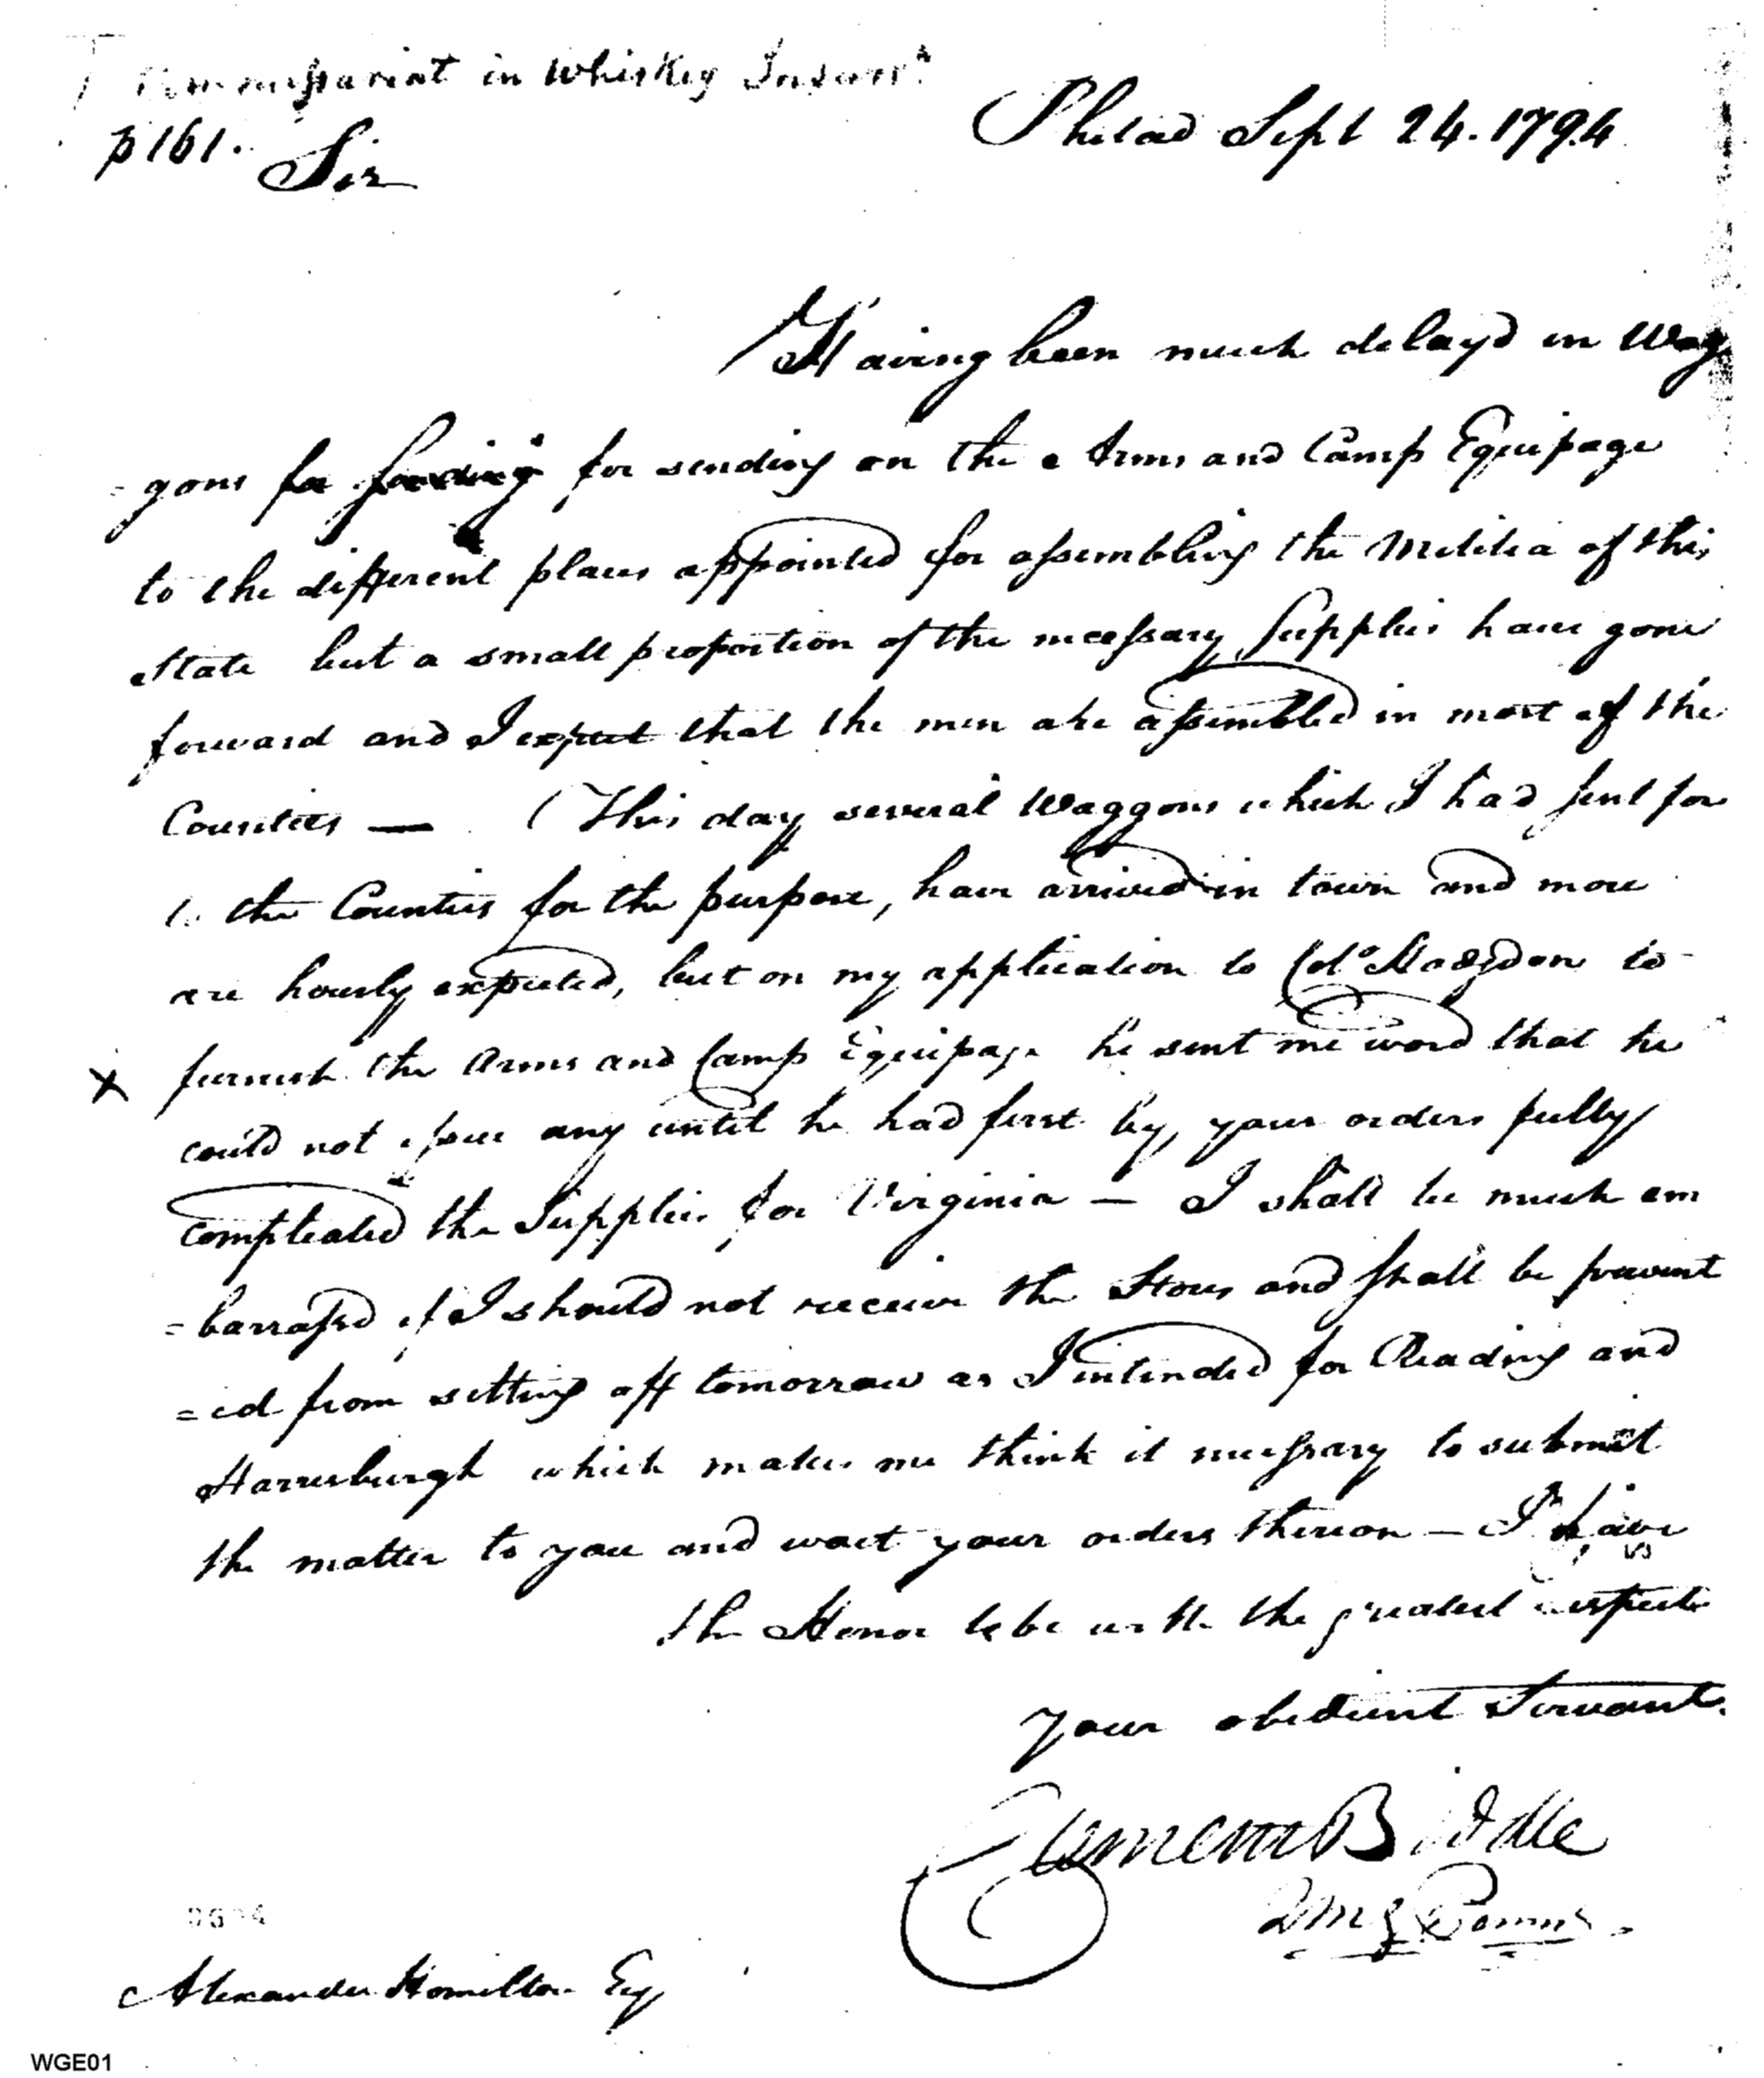 Commissariat in Whiskey Insurr.
p 161.
Philad Sept 24. 1794
Sir
Having been much delayd in Wag
=gons for for sending on the Arms and Camp Equipage
to the different places appointed for assembling the Militia of this
State but a small proportion of the necessary Supplies have gone
forward and I expect that the men are assembled in most of the
Counties — This day several Waggons which I had sent for
to the Counties for the purpose, have arrived in town and more
are hourly expected, but on my application to Colo Hodgdon to
x furnish the Arms and Camp Equipage he sent me word that he
could not issue any until he had first by your orders fully
compleated the Supplies for Virginia — I shall be much em
=barrassd if I should not receive the Stores and shall be prevent
=ed from setting off tomorrow as I intended for Reading and
Harrisburgh which makes me think it necessary to submit
the matter to you and wait your orders thereon — I have
the Honor to be with the greatest respect
Your obedient Servant.
Clement Biddle
QMG Penns
Alexander Hamilton Esq
WGE01